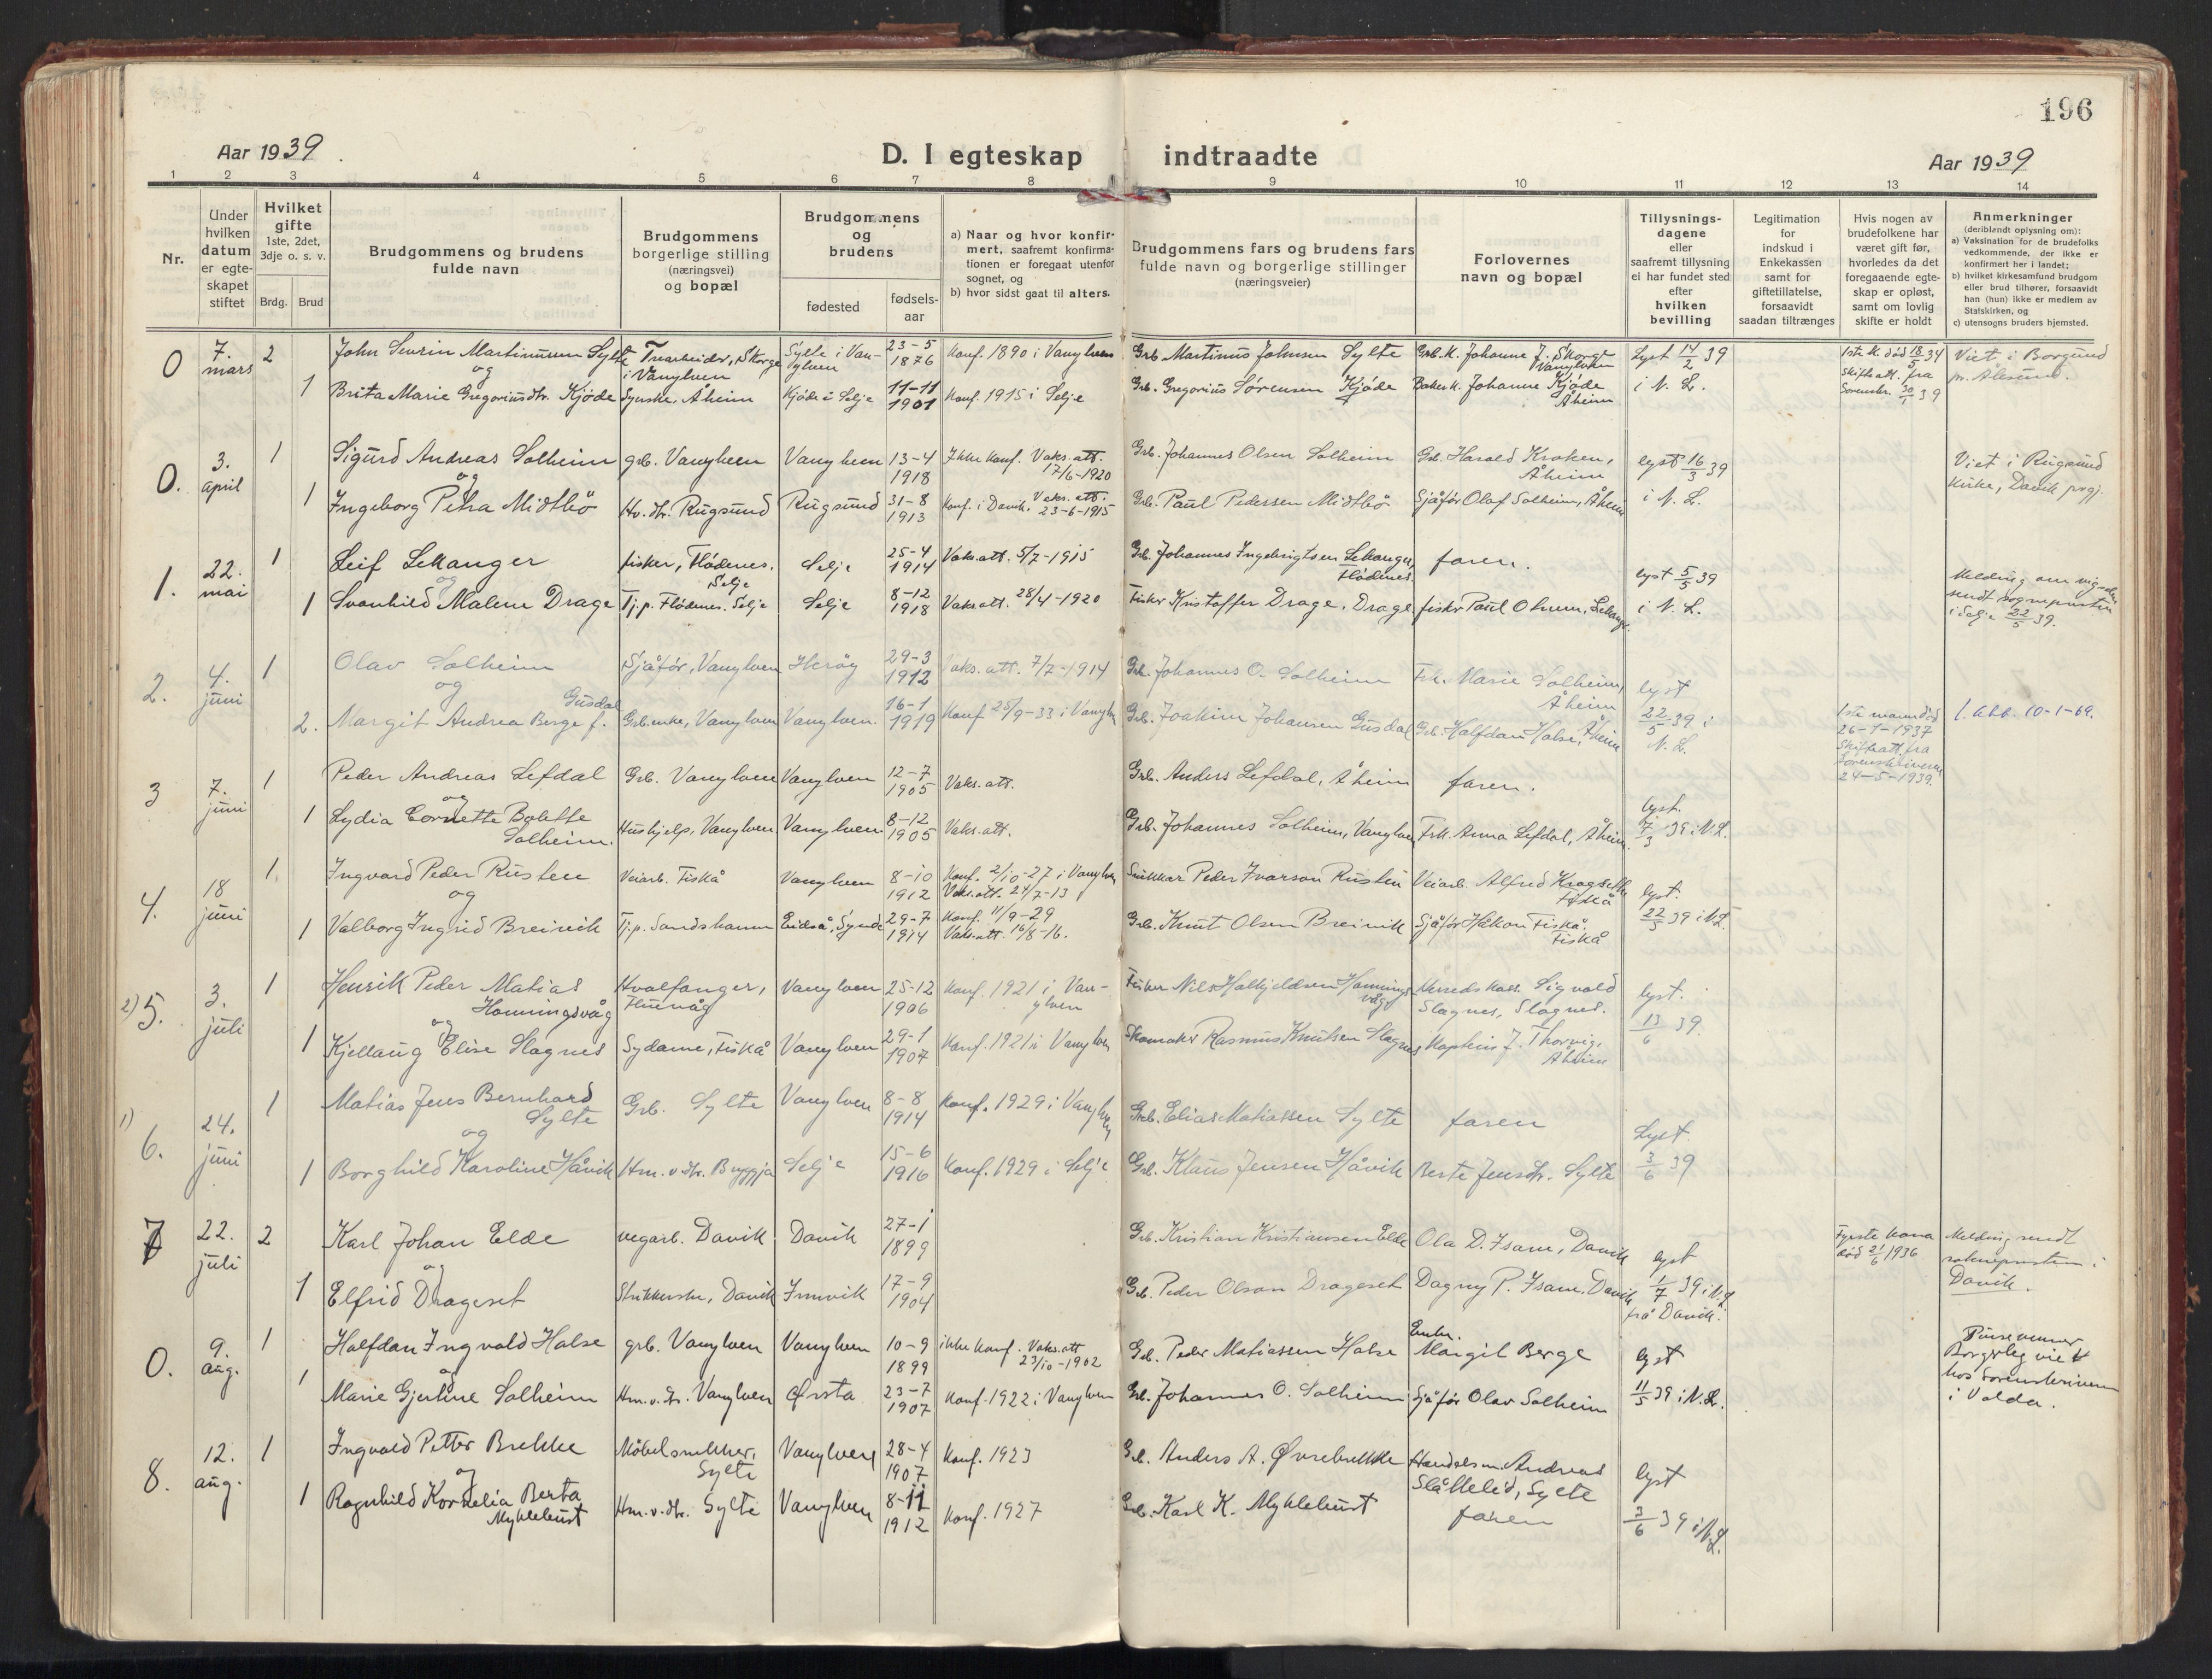 196
Aar 1939
D. I egteskap indtraadte
Aar 1939
1 2 3 4 5 6 7 8 9 10 11 12 13 14
Nr.
Under hvilken datum er egte-skapet stiftet
Hvilket gifte 1ste, 2det, 3dje o. s. v.
Brdg. Brud
Brudgommens og brudens fulde navn
Brudgommens borgerlige stilling (næringsvei) og bopæl
Brudgommens og brudens
fødested
fødsels-aar
a) Naar og hvor konfir-mert, saafremt konfirma-tionen er foregaat utenfor sognet, og
b) hvor sidst gaat til alters.
Brudgommens fars og brudens fars fulde navn og borgerlige stillinger (næringsveier)
Forlovernes navn og bopæl
Tillysnings-dagene eller saafremt tillysning ei har fundet sted efter hvilken bevilling
Legitimation for indskud i Enkekassen samt for giftetillatelse, forsaavidt saadan tiltrænges
Hvis nogen av brudefolkene har været gift før, hvorledes da det foregaaende egte-skap er opløst, samt om lovlig skifte er holdt
Anmerkninger (deriblandt oplysning om):
a) Vaksination for de brudefolks vedkommende, der ikke er konfirmert her i landet;
b) hvilket kirkesamfund brudgom eller brud tilhører, forsaavidt han (hun) ikke er medlem av Statskirken, og
c) utensogns bruders hjemsted.
0 7. mars 2 John Sevrin Martinussen Sylte Skorge i Vanylven Sylte i Vanylven 23-5 1876 Konf. 1890 i Vanylven Grb. Martinus Johnsen Sylte Grb.k. Johanne J. Skorge Vanylven Lyst 14/2 39 1ste k. død 18/5 34 Viet i Borgund
og
1 Brita Marie Gregoriusdtr. Kjøde Syerske, Åheim Kjøde i Selje 11-11 1901 Konf. 1915 i Selje Grb. Gregorius Sørensen Kjøde Johanne Kjøde Åheim i N. L. Skifteatt. fra Sorenskr. 30/1 39 pr. Ålesund.
0. 3. april 1 Sigurd Andreas Solheim grb. Vanylven Vanylven 13-4 1918 Ikke konf. Vaks. att. 17/6-1920 Grb. Johannes Olsen Solheim Grb. Harald Kroken, Åheim lyst 16/3 39 Viet i Rugsund
og
1 Ingeborg Petra Midtbö Hv. dtr. Rugsund Rugsund 31-8 1913 Konf. i Davik. Vaks. att. 23-6-1915 Grb. Paul Pedersen Midtbö Sjåfør Olaf Solheim, Åheim i N. L. kirke, Davik prgj.
1. 22. mai 1 Leif Lekanger fisker, Flødenes. Selje Selje 25-4 1914 Vaks. att. 5/7-1915 Grb. Johannes Ingebrigtsen Lekanger, Flødenes. faren. lyst 5/5 39 Melding om vigselen
og
1 Svanhild Malene Drage Tj.p. Flødenes. Selje Selje 8-12 1918 Vaks att. 28/4-1920 Fisker Kristoffer Drage, Drage fisker Paul Lekanger i N. L. sendt sognepresten i Selje 22/5 39.
2. 4. juni 1 Olav Solheim Sjåfør, Vanylven Herøy 29-3 1912 Vaks. att. 7/7-1914 Grb. Johannes O. Solheim Frk. Marie Solheim, Åheim lyst
og
2. Margit Andrea Berge f. Gusdal Grb.enke, Vanylven Vanylven. 16-1 1919 Konf 25/9-33 i Vanylven Grb. Joakim Johansen Gusdal Grb. Halfdan Halse, Åheim 22/5 39 i N. L. 1ste mann død 26-1-1937 Skifteatt. fra Sorenskriveren 24-5-1939. 10-1-69.
3 7. juni 1 Peder Andreas Lefdal Grb. Vanylven Vanylven 12-7 1905 Vaks. att. Grb. Anders Lefdal, Åheim faren.
og
1 Lydia Cornette Bolette Solheim. Hushjelp, Vanylven Vanylven 8-12 1905 Vaks. att. Grb. Johannes Solheim, Vanylven Frk. Anna Lefdal, Åheim lyst. 7/3 39 i N. L.
4. 18 juni 1. Ingvard Peder Rusten Veiarb. Fiskå Vanylven 8-10 1912 Konf. 2/10-27 i Vanylven Vaks. att. 24/7-13 Snikkar Peder Ivarson Rusten Veiarb. Alfred Fiskå lyst.
og
1 Valborg Ingrid Breivik Tj.p. Sandshamn Eidså, Syvde 29-7 1914 Konf. 11/9-29 Vaks. att. 16/8-16. Grb. Knut Olsen Breivik Sjåfør Håkon Fiskå, Fiskå 22/5 39 i N.L.
2) 5. 3. juli 1 Henrik Peder Matias Honningsvåg Hvalfanger, Vanylven 25-12 1906 Konf. 1921 i Vanylven Fisker Nils Honningsvåg Herredskass. Sigvald Slagnes, Slagnes. lyst.
og
1 Kjellaug Elise Slagnes Sydame, Fiskå Vanylven 29-1 1907 Konf. 1921 i Vanylven Skomaker Rasmus Knutsen Slagnes Kaptein J. Thorvig, Åheim 13/6 39.
1) 6. 24. juni 1 Matias Jens Bernhard Sylte Grb. Sylte Vanylven 8-8 1914 Konf. 1929 i Vanylven Grb. Elias Matiassen Sylte faren Lyst.
og
1 Borghild Karoline Håvik Hm. v. dtr. Bryggja Selje 15-6 1916 Konf. 1929 i Selje Grb. Klaus Jensen Håvik Berte Jensdtr. Sylte 3/6 39
7 22. juli 2 Karl Johan Elde vegarb. Davik Davik 27-1 1899 Grb. Kristian Kristiansen Elde Ola D. Isane, Davik lyst Fyrste kona død 21/6 1936 Melding sendt
og
1 Elfrid Drageset Strikkerske, Davik Innvik 17-9 1904 Grb. Peder Olson Drageset Dagny P. Isane, Davik 1/7 39 i N.L. frå Davik. soknepresten i Davik.
0. 9. aug. 1 Halfdan Ingvald Halse grb. Vanylven Vanylven 10-9 1899 ikke konf. Vaks. att 23/10-1902 Grb. Peder Matiassen Halse Enke. Margit Berge lyst Pinsevenner
og
1 Marie Gjertine Solheim Hm. v. dtr. Vanylven Ørsta 23-7 1907 Konf. 1922 i Vanylven Grb. Johannes O. Solheim Sjåfør Olav Solheim 11/5 39 i N.L. Borgerleg viet hos Sorenskriveren i Volda.
8. 12. aug. 1 Ingvald Petter Brekke Møbelsnekker, Sylte Vanylven 28-4 1907 Konf. 1923 Grb. Anders A. Øvrebrekke Handelsm. Andreas Slåttelid, Sylte lyst
og
1 Ragnhild Kornelia Berta Myklebust Hm. v. dtr. Sylte Vanylven 8-11 1912 Konf. 1927 Grb. Karl K. Myklebust faren 3/6 39 i N.L.